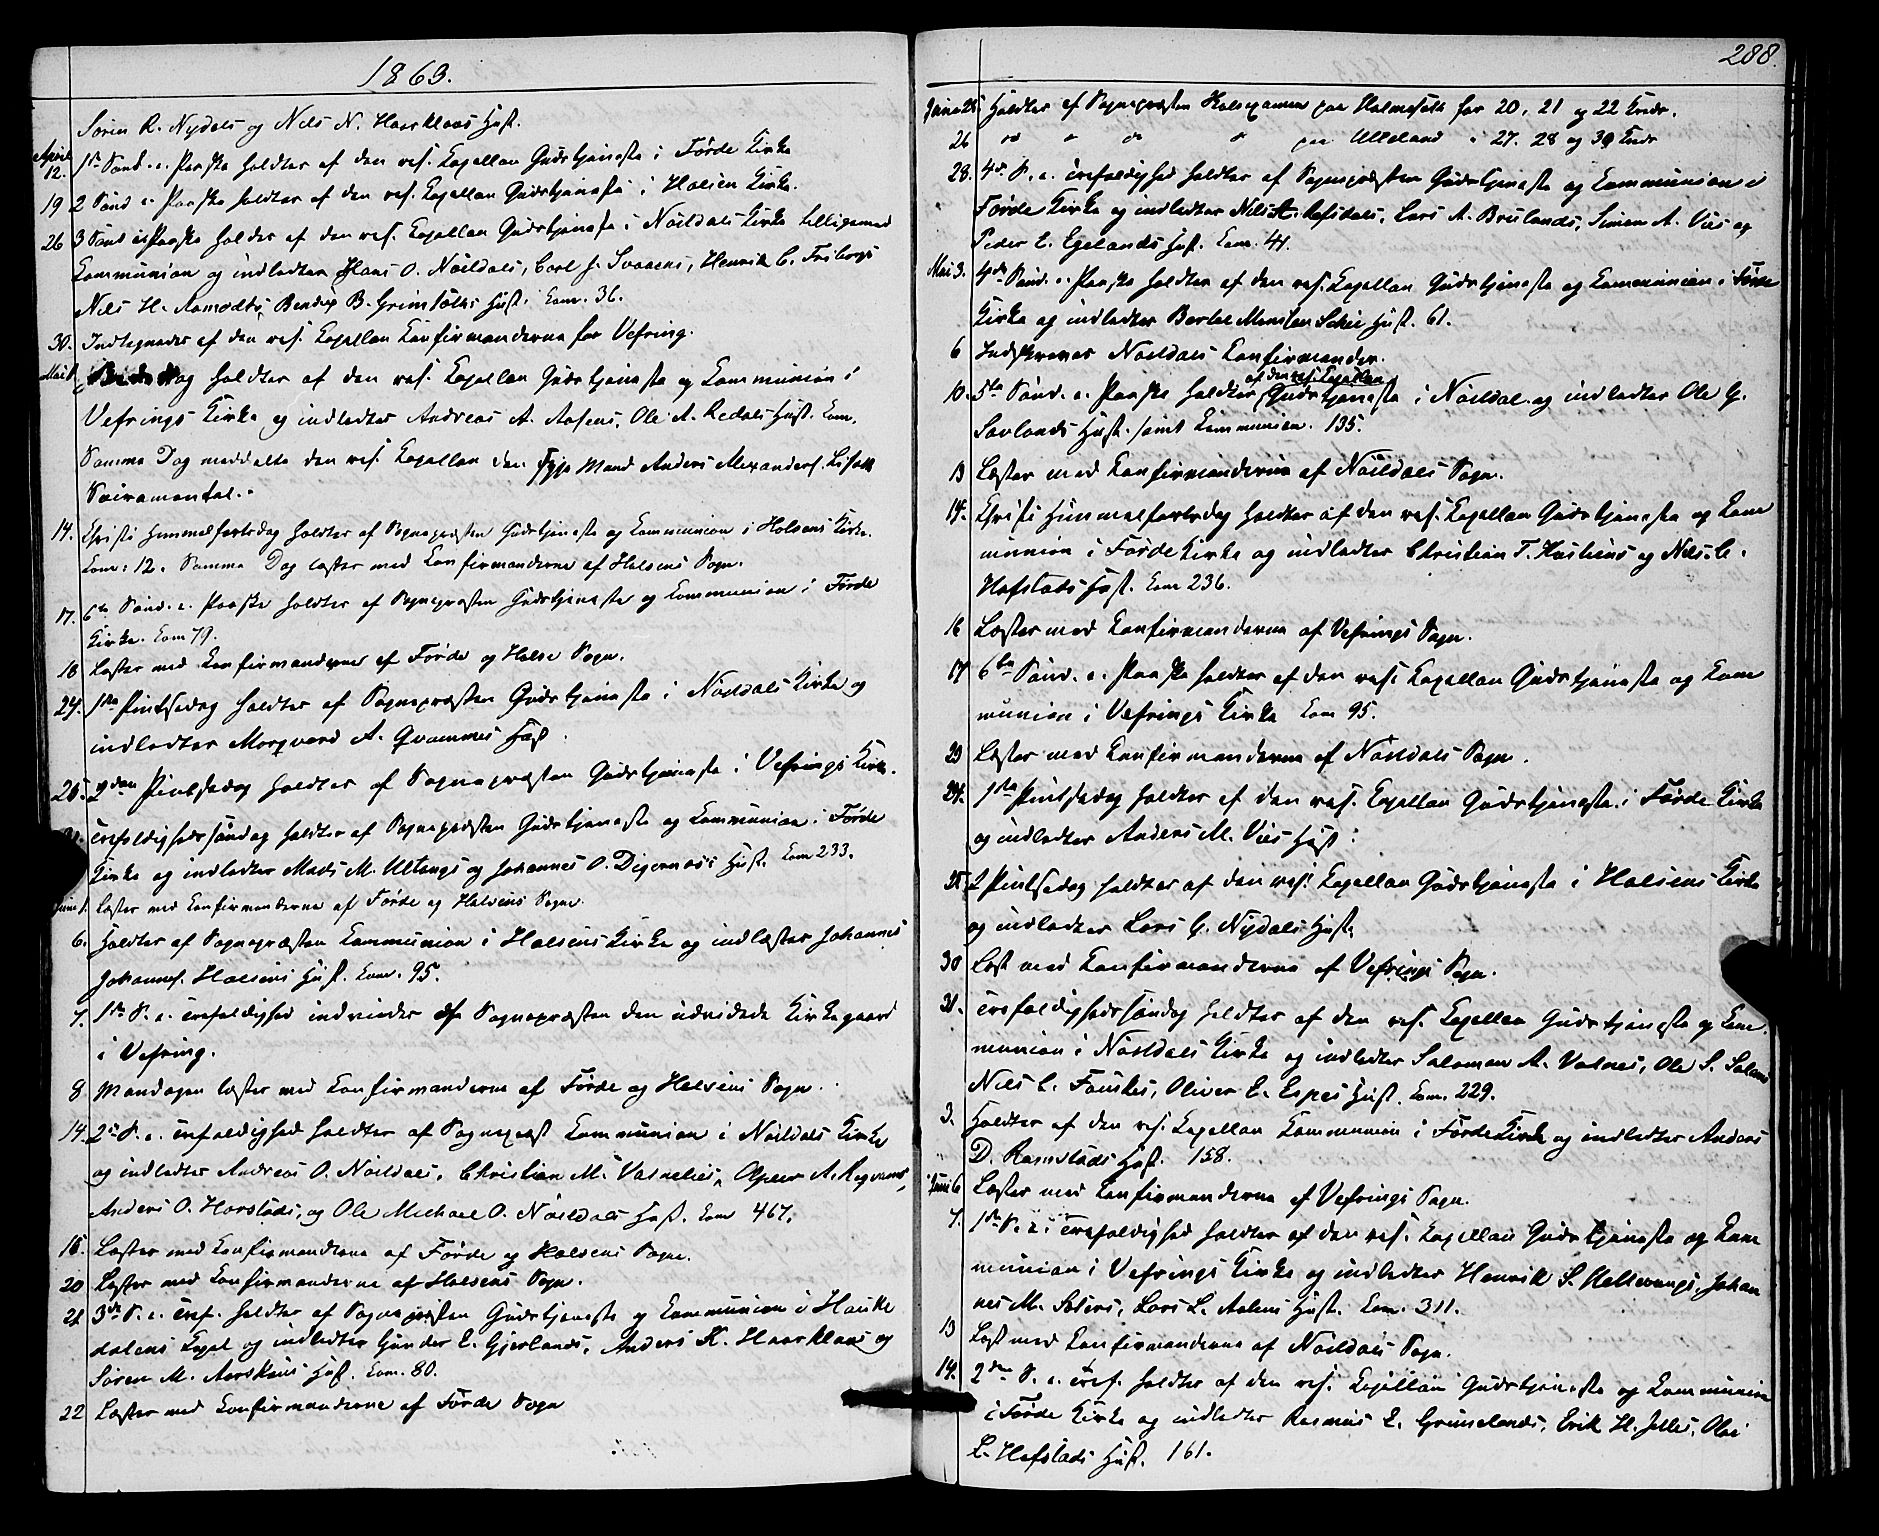 1863.
Søren R. Nydals og Nils N. Haarklaus Hust.
April 12. 1ste Sønd. e. Paaske holdtes af den res. Capellan Gudstjeneste i Førde Kirke
19 2 Sønd e. Paaske holdtes af den res. Capellan Gudstjeneste i Holsen Kirke.
26 3 Sønd e. Paaske holdtes af den res. Capellan Gudstjeneste i Nøildals Kirke tilligemed
Communion og indledtes Hans O. Nøildals, Carl J. Svaaens, Henrik C. Fribergs
Nils H. Aamodts, Bendix B. Grimsøths Hust. Com. 36.
30. Indtegnedes af den res. Capellan Confirmanderne for Vefring.
Mai 1. Bededag holdtes af den res. Capellan Gudstjeneste og Communion i
Vefrings Kirke og indledtes Andreas A. Aasens, Ole A. Redals Hust. Com.
Samme Dag meddelte den res. Capellan den syge Mand Anders Alexanders.
Sacramentet.
14. Christi Himmelfartsdag holdtes af Sognepræsten Gudstjeneste og Communion i Holsens Kirke.
Com: 12. Samme Dag læstes med Confirmanderne af Holsens Sogn.
17. 6te Sønd. e. Paaske holdtes af Sognepræsten Gudstjeneste og Communion i Førde
Kirke. Com 79.
18 Læstes med Confirmanderne af Førde og Holse Sogn.
24. 1ste Pintsedag holdtes af Sognepræsten Gudstjeneste i Nøildals Kirke og
indledtes Morqvard A. Qvammes Hust.
25. 2den Pintsedag holdtes af Sognepræsten Gudstjeneste i Vefrings Kirke.
Trefoldighedssøndag holdtes af Sognepræsten Gudstjeneste og Communion i Førde
Kirke og indledtes Mads M. Ultangs og Johannes O. Digernæs's Hust. Com 233.
Juni 1. Læstes med Confirmanderne af Førde og Holsens Sogne.
6. Holdtes af Sognepræsten Communion i Holsens Kirke og indledtes Johannes
Johannes. Holsens Hust. Com. 95.
7. 1ste S. e. Trefoldighed indviedes af Sognepræsten den udvidede Kirkegaard
i Vefring.
8 Mandagen læstes med Confirmanderne af Førde og Holsens Sogn.
14. 2 S. e. Trefoldighed holdtes af Sognepræst Communion i Nøildals Kirke
og indledtes Andreas O. Nøildals, Christian M. A.
Anders O. Horstads, og Ole Michael O. Nøildals Hust. Com 467.
15. Læstes med Confirmanderne af Førde og Holsens Sogne.
20 Læstes med Confirmanderne af Holsens Sogn.
21 3de S. e. Tref. holdtes af Sognepræsten Gudstjeneste og Communion i Hauke
dalens Capel og indledtes Gunder E. Gjerlands, Anders K. Haarklaus og
Søren M. Aarskaus Hust. Com. 80.
22 Læstes med Confirmanderne af Førde Sogn
288.
Juni 25 Holdtes af Sognepræsten paa for 20, 21 og 22
26 " " " " paa Ulleland " 27. 28 og 30
28. 4de S. e. Trefoldighed holdtes af Sognepræsten Gudstjeneste og Communion i
Førde Kirke og indledtes Nils A. Refsdals, Lars A. Brulands, Simen A. Vies og
Peder E. Egelands Hust. Com. 41.
Mai 3. 4de Sønd. e. Paaske holdtes af den res. Capellan Gudstjeneste og Communion i Førde
Kirke og indledtes Bertel Monsten Schei Hust. 61.
6 Indskreves Nøildals Confirmander.
10. 5te Sønd. e. Paaske holdtes af den res. Capellan Gudstjeneste i Nøildal og indledtes Ole G.
Savlands Hust. samt Communion. 135.
13 Læstes med Confirmanderne af Nøildals Sogn.
14. Christi Himmelfartsdag holdtes af den res. Capellan Gudstjeneste og Com
munion i Førde Kirke og indledtes Christian T. og Nils C.
Hafstads Hust. Com 236.
16 Læstes med Confirmanderne af Vefrings Sogn.
17 6te Sønd. e. Paaske holdtes af den res. Capellan Gudstjeneste og Com
munion i Vefrings Kirke Com 95.
23 Læstes med Confirmanderne af Nøildals Sogn.
24. 1ste Pintsedag holdtes af den res. Capellan Gudstjeneste i Førde Kirke
og indledtes Anders M. Vies Hust.
25. 2 Pintsedag holdtes af den res. Capellan Gudstjeneste i Holsens Kirke
og indledtes Lars G. Nydals Hust.
30 Læst med Confirmanderne af Vefrings Sogn.
31. Trefoldighedssøndag holdtes af den res. Capellan Gudstjeneste og Com
munion i Nøildals Kirke og indledtes Salomon A. Valnes, Ole S.
Nils C. Fauskes, Oliver E. Espes Hust. Com. 229.
3. Holdtes af den res. Capellan Communion i Førde Kirke og indledtes Anders
D. Ramstads Hust. 158.
Juni 6 Læstes med Confirmanderne af Vefrings Sogn.
7. 1ste S. e. Trefoldighed holdtes af den res. Capellan Gudstjeneste og Com
munion i Vefrings Kirke og indledtes Henrik S. Kallevangs, Johan
nes M. Lars L. Aalens Hust. Com. 311.
13 Læst med Confirmanderne af Nøildals Sogn.
14. 2den S. e. Tref. holdtes af den res. Capellan Gudstjeneste og Communion
i Førde Kirke og indledtes Rasmus E. Grimelands, Erik H. Olai
L. Hafstads Hust. 161.